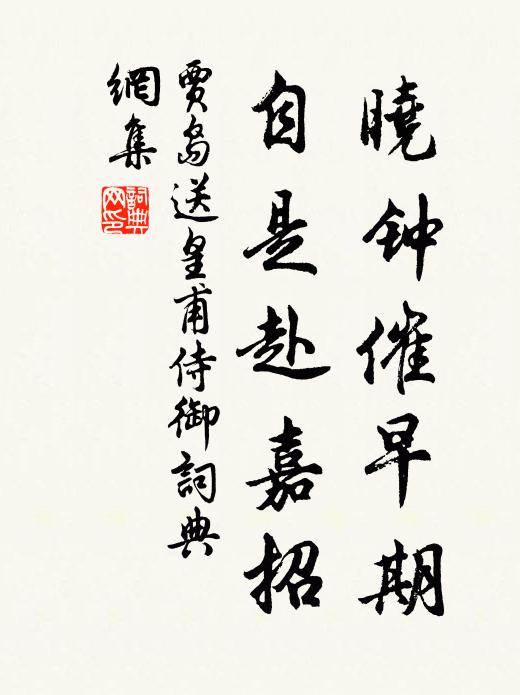 曉钟催早期
自是赴嘉招
賈島送皇甫侍御詞典
網集
詞典
网印